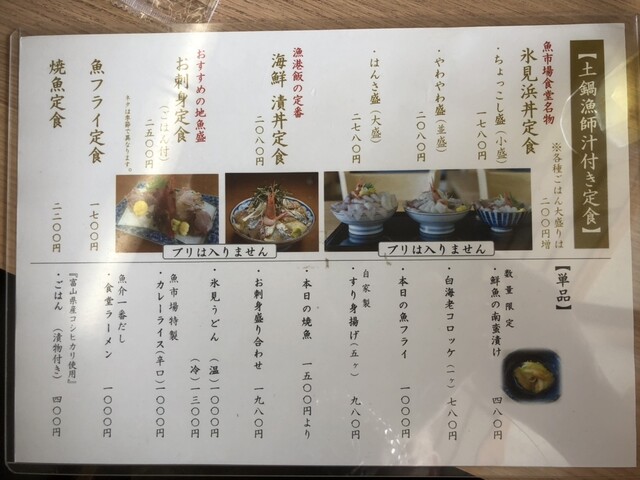 【土鍋漁師汁付き定食】
※各種ごはん大盛りは
二〇〇円増
魚市場食堂名物
氷見浜丼定食
・ちょっこし盛(小盛)
一七八〇円
・やわやわ盛(並盛)
二〇八〇円
・はんさ盛(大盛)
二七八〇円
漁港飯の定番
海鮮漬丼定食
二〇八〇円
おすすめの地魚盛
お刺身定食
(ごはん付)
二五〇〇円
魚フライ定食
一七〇〇円
焼魚定食
二二〇〇円
ブリは入りません
ブリは入りません
【単品】
数量限定
・鮮魚の南蛮漬け
四八〇円
・白海老コロッケ(一ヶ)
七八〇円
・本日の魚フライ
一〇〇〇円
自家製
・すり身揚げ(五ヶ)
九八〇円
・本日の焼魚
一五〇〇円より
・お刺身盛り合わせ
一九八〇円
・氷見うどん(温)一〇〇〇円
(冷)一三〇〇円
魚市場特製
・カレーライス(辛口)一〇〇〇円
魚介一番だし
・食堂ラーメン
一〇〇〇円
『富山県産コシヒカリ使用』
・ごはん(漬物付き)
四〇〇円